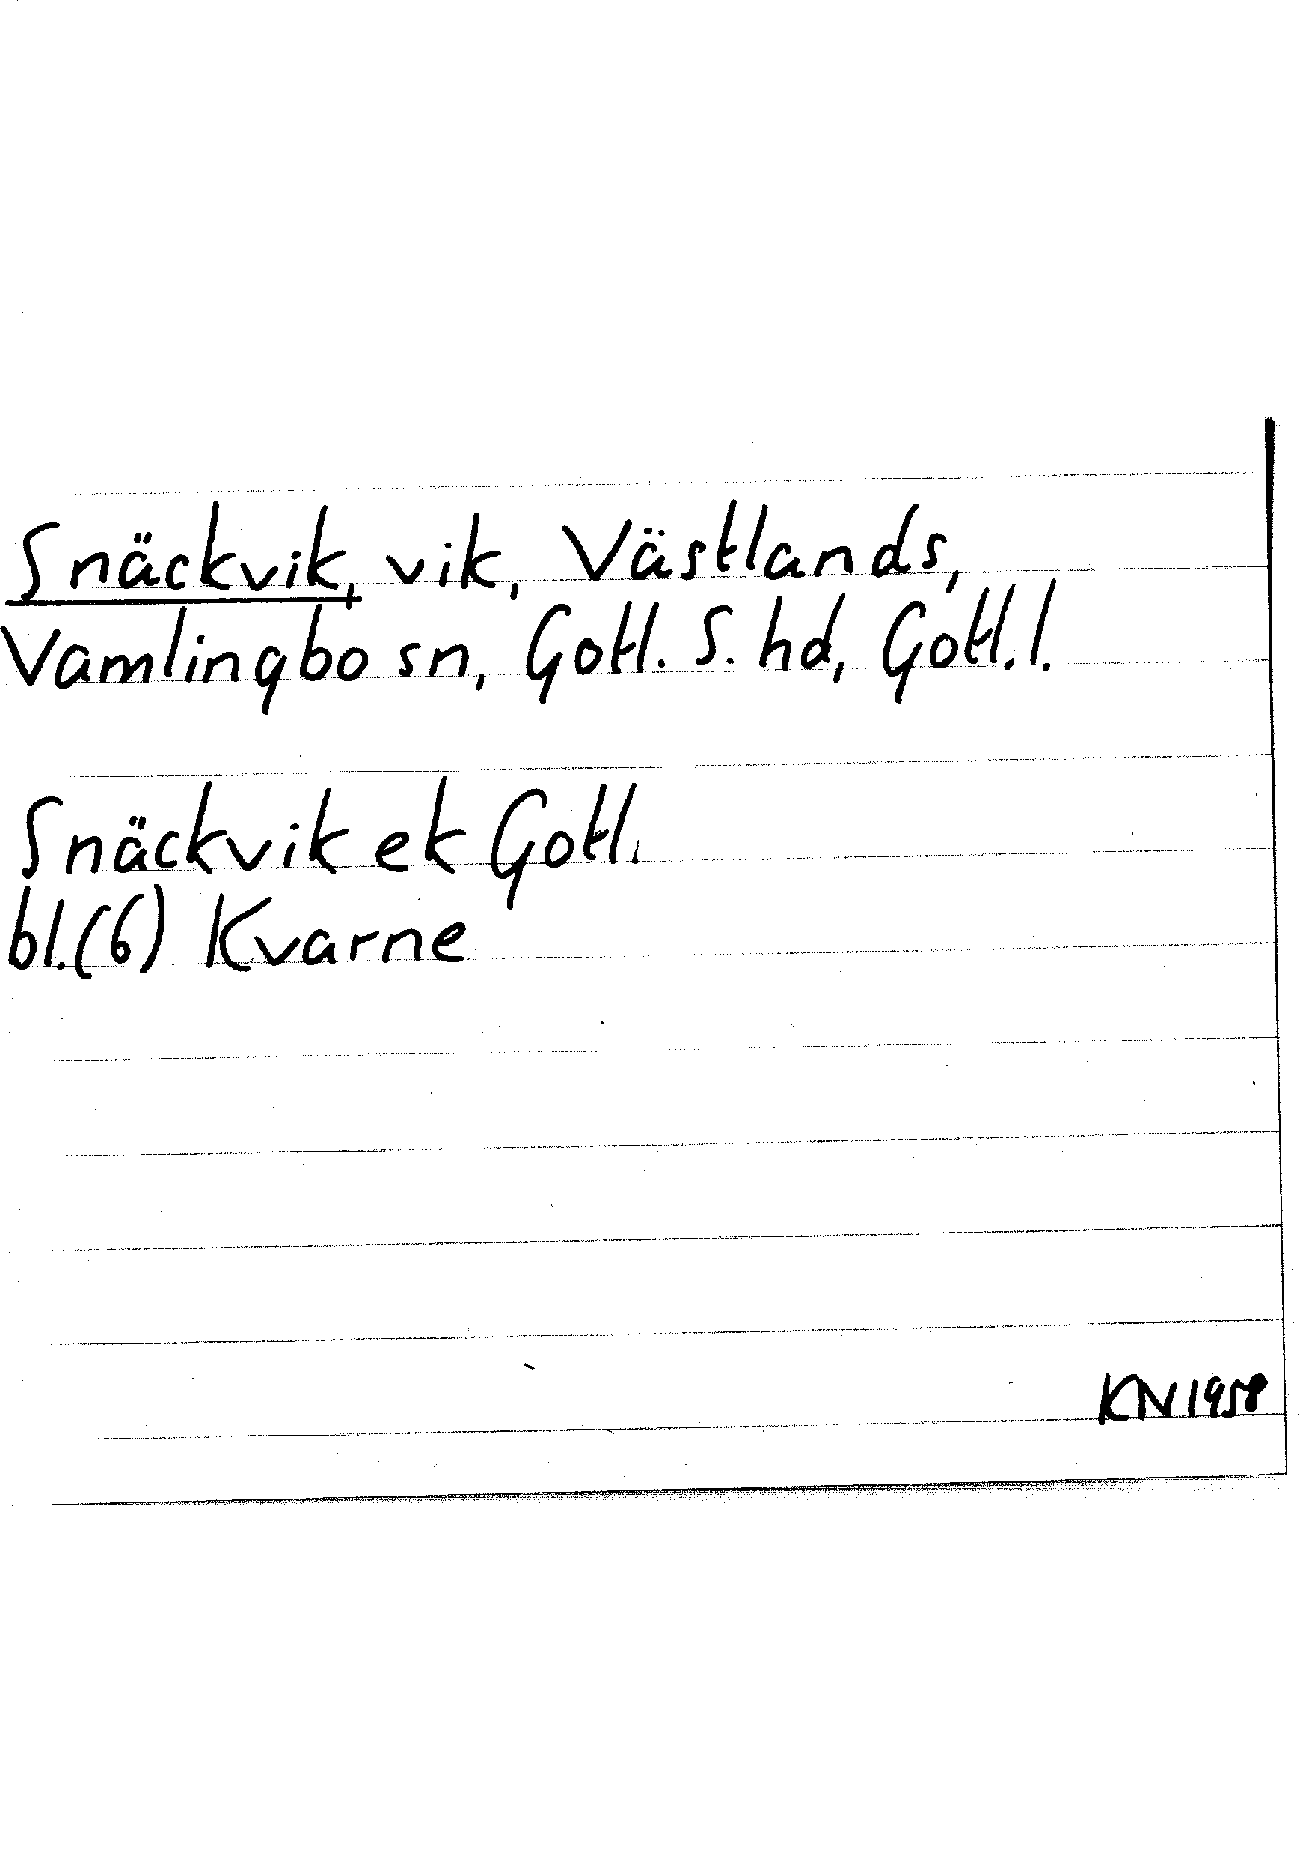 Snäckvik, vik, Västlands,
Vamlingbo sn, Gotl. S. hd, Gotl.l.
Snäckvik ek Gotl.
bl.(6) Kvarne
KN 1958